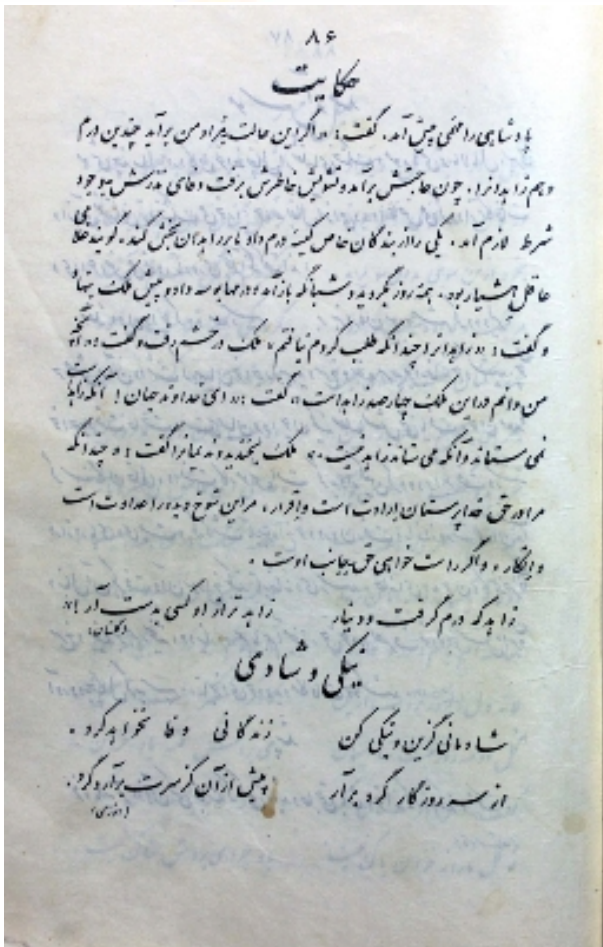 ۸۶
حکایت
پادشاهی را مهمی پیش آمد، گفت: «اگر این حالت بمراد من برآید چندین درم
دهم زاهدانرا. چون حاجتش برآمد و تشویش خاطرش برفت وفای نذرش بوجود
شرط لازم آمد. یکی را از بندگان خاص کیسهٔ درم داد تا بر زاهدان بخش کند. گویند غلامی
عاقل هشیار بود، همه روز بگردید و شبانگه باز آمد و درمها بوسه داد و پیش ملک بنهاد
و گفت: «زاهدانرا چندانکه طلب کردم نیافتم» ملک در خشم رفت و گفت: «آنچه
من دانم در این ملک چهارصد زاهد است» گفت: «ای خداوند جهان! آنکه زاهد است
نمی ستاند و آنکه می ستاند زاهد نیست.» ملک بخندید و ندیمانرا گفت: «چندانکه
مرا در حق خداپرستان ارادت است و اقرار، مر این شوخ دیده را عداوت است
و انکار، و اگر راست خواهی حق بجانب اوست.
زاهد که درم گرفت و دینار زاهدتر از او کسی بدست آر!»
(گلستان)
نیکی و شادی
شادمانی گزین و نیکی کن زندگانی وفا نخواهد کرد.
از سه روزگار گرد برآر پیش از آن کز سرت برآرد گرد.
(انوری)